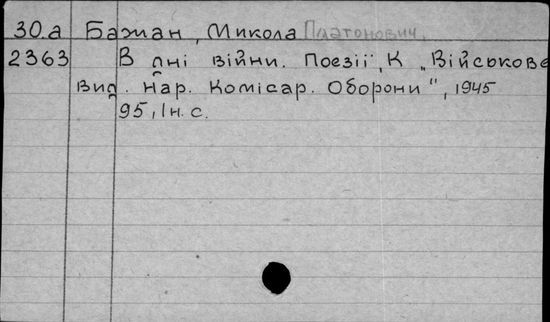 30.а Бажан, Микола Платонович.
2363 В дні війни. Поезії, К „Військове
Вид. Нар. Комісар. Оборони“, 1945
95, 1 н. с.